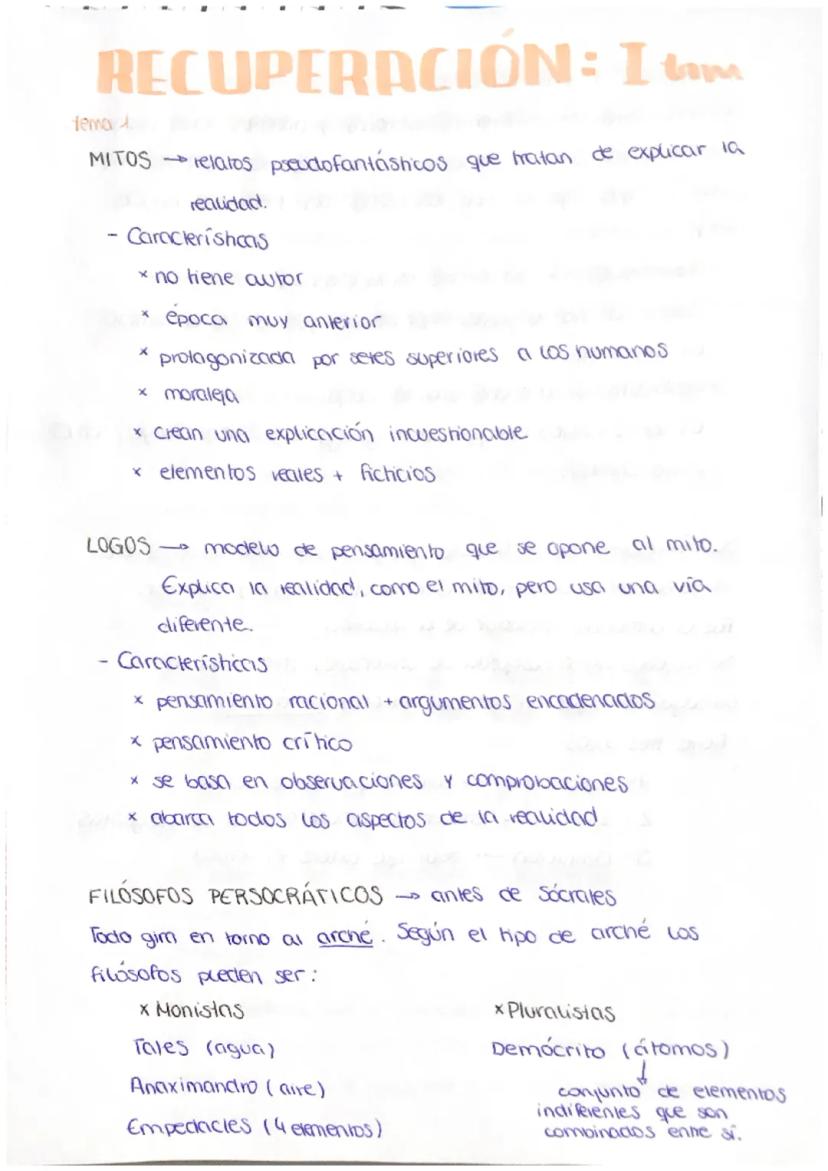 RECUPERACIÓN: I tam
tema 1
MITOS → relatos pseudofantásticos que tratan de explicar la
realidad.
- Características
× no tiene autor
× época muy anterior
× protagonizada por seres superiores a los humanos
× moraleja
× crean una explicación incuestionable
× elementos reales + ficticios
LOGOS → modelo de pensamiento que se opone al mito.
Explica la realidad, como el mito, pero usa una vía
diferente.
- Características
× pensamiento racional + argumentos encadenados
× pensamiento crítico
× se basa en observaciones y comprobaciones
× abarca todos los aspectos de la realidad
FILÓSOFOS PERSOCRÁTICOS → antes de Sócrates
Todo gira en torno al arché. Según el tipo de arché los
filósofos pueden ser:
× Monistas
Tales (agua)
Anaximandro (aire)
Empedacles (4 elementos)
× Pluralistas
Demócrito (átomos)
↓
conjunto de elementos
indiferentes que son
combinados entre sí.